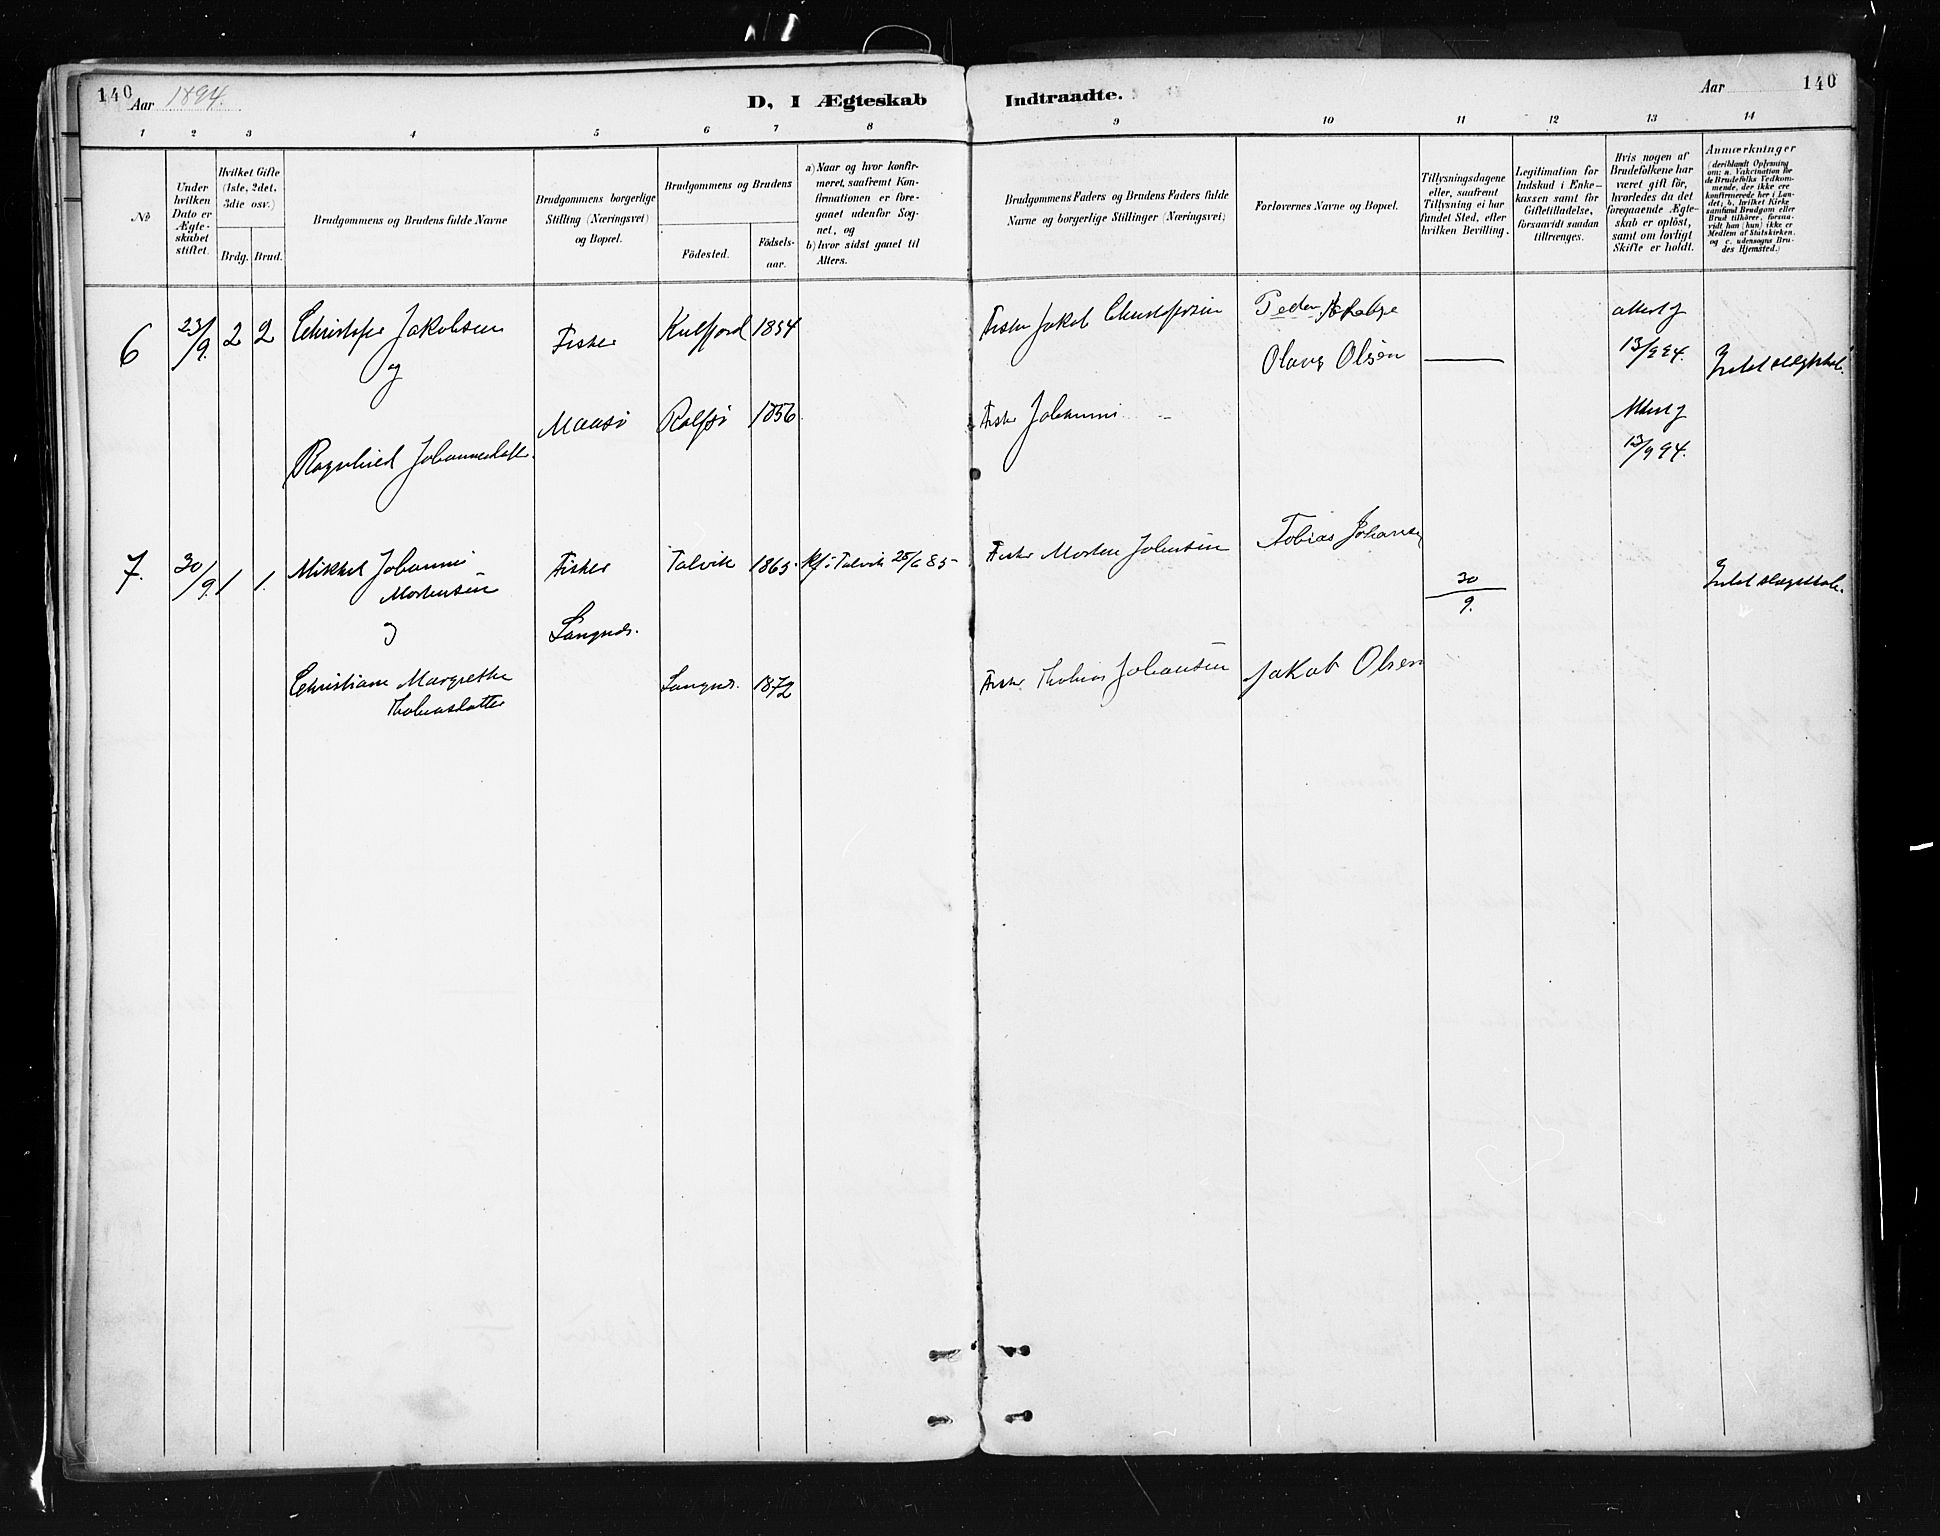 140
Aar 1894.
D, I Ægteskab
Indtraadte.
Aar
140
1 2 3 4 5 6 7 8 9 10 11 12 13 14
No
Under
hvilken
Dato er
Ægte-
skabet
stiftet.
Hvilket Gifte
(1ste, 2det,
3die osv.)
Brdg. Brud.
Brudgommens og Brudens fulde Navne
Brudgommens borgerlige
Stilling (Næringsvei)
og Bopæl.
Brudgommens og Brudens
Födested.
Födsels-
aar.
a) Naar og hvor konfir-
meret, saafremt Kon-
firmationen er fore-
gaaet udenfor Sog-
net, og
b) hvor sidst gaaet til
Alters.
Brudgommens Faders og Brudens Faders fulde
Navne og borgerlige Stillinger (Næringsvei)
Forlovernes Navne og Bopæl.
Tillysningsdagene
eller, saafremt
Tillysning ei har
fundet Sted, efter
hvilken Bevilling.
Legitimation for
Indskud i Enke-
kassen samt for
Giftetilladelse,
forsaavidt saadan
tiltrænges.
Hvis nogen af
Brudefolkene har
været gift för,
hvorledes da det
foregaaende Ægte-
skab er oplöst,
samt om lovligt
Skifte er holdt.
Anmærkninger
(deriblandt Oplysning
om: a. Vakcination for
de Brudefolks Vedkom-
mende, der ikke ere
konfirmerede her i Lan-
det; b. hvilket Kirke
samfund Brudgom eller
Brud tilhörer, forsaa-
vidt han (hun) ikke er
Medlem af Statskirken.
og c. udensogns Bru-
des Hjemsted.)
6 23/9. 2 2 Christofer Jakobsen Fisker Kulfjord 1854 Fisker Jakob Christofersen Peder
og Olaus Olsen 13/9 94. Intet slægtskab.
Ragnhild Johannesdatter. Maasö Rolfsö 1856 Fisker Johannes
13/9 94.
7. 30/9. 1 1. Mikkel Johannes Fisker Talvik 1865. Kf. i Talvik 25/6 85 Fisker Morten Johnsen Tobias Johansen 30/9. Intet slægtskab.
Mortensen
og Langnds.
Christiane Margrethe Langnds. 1872 Fisker Thobias Johansen Jakob Olsen
Thobiasdatter